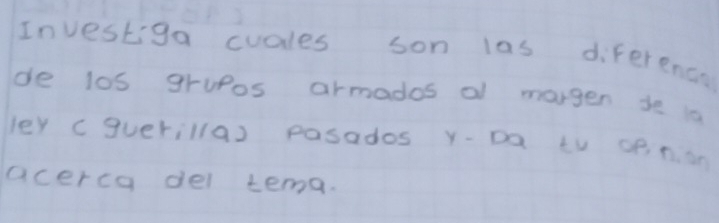 Investiga cuales son las diferencias
de los grupos armados al margen de la
ley (guerilla) pasados y. Da tu opinion
acerca del tema.